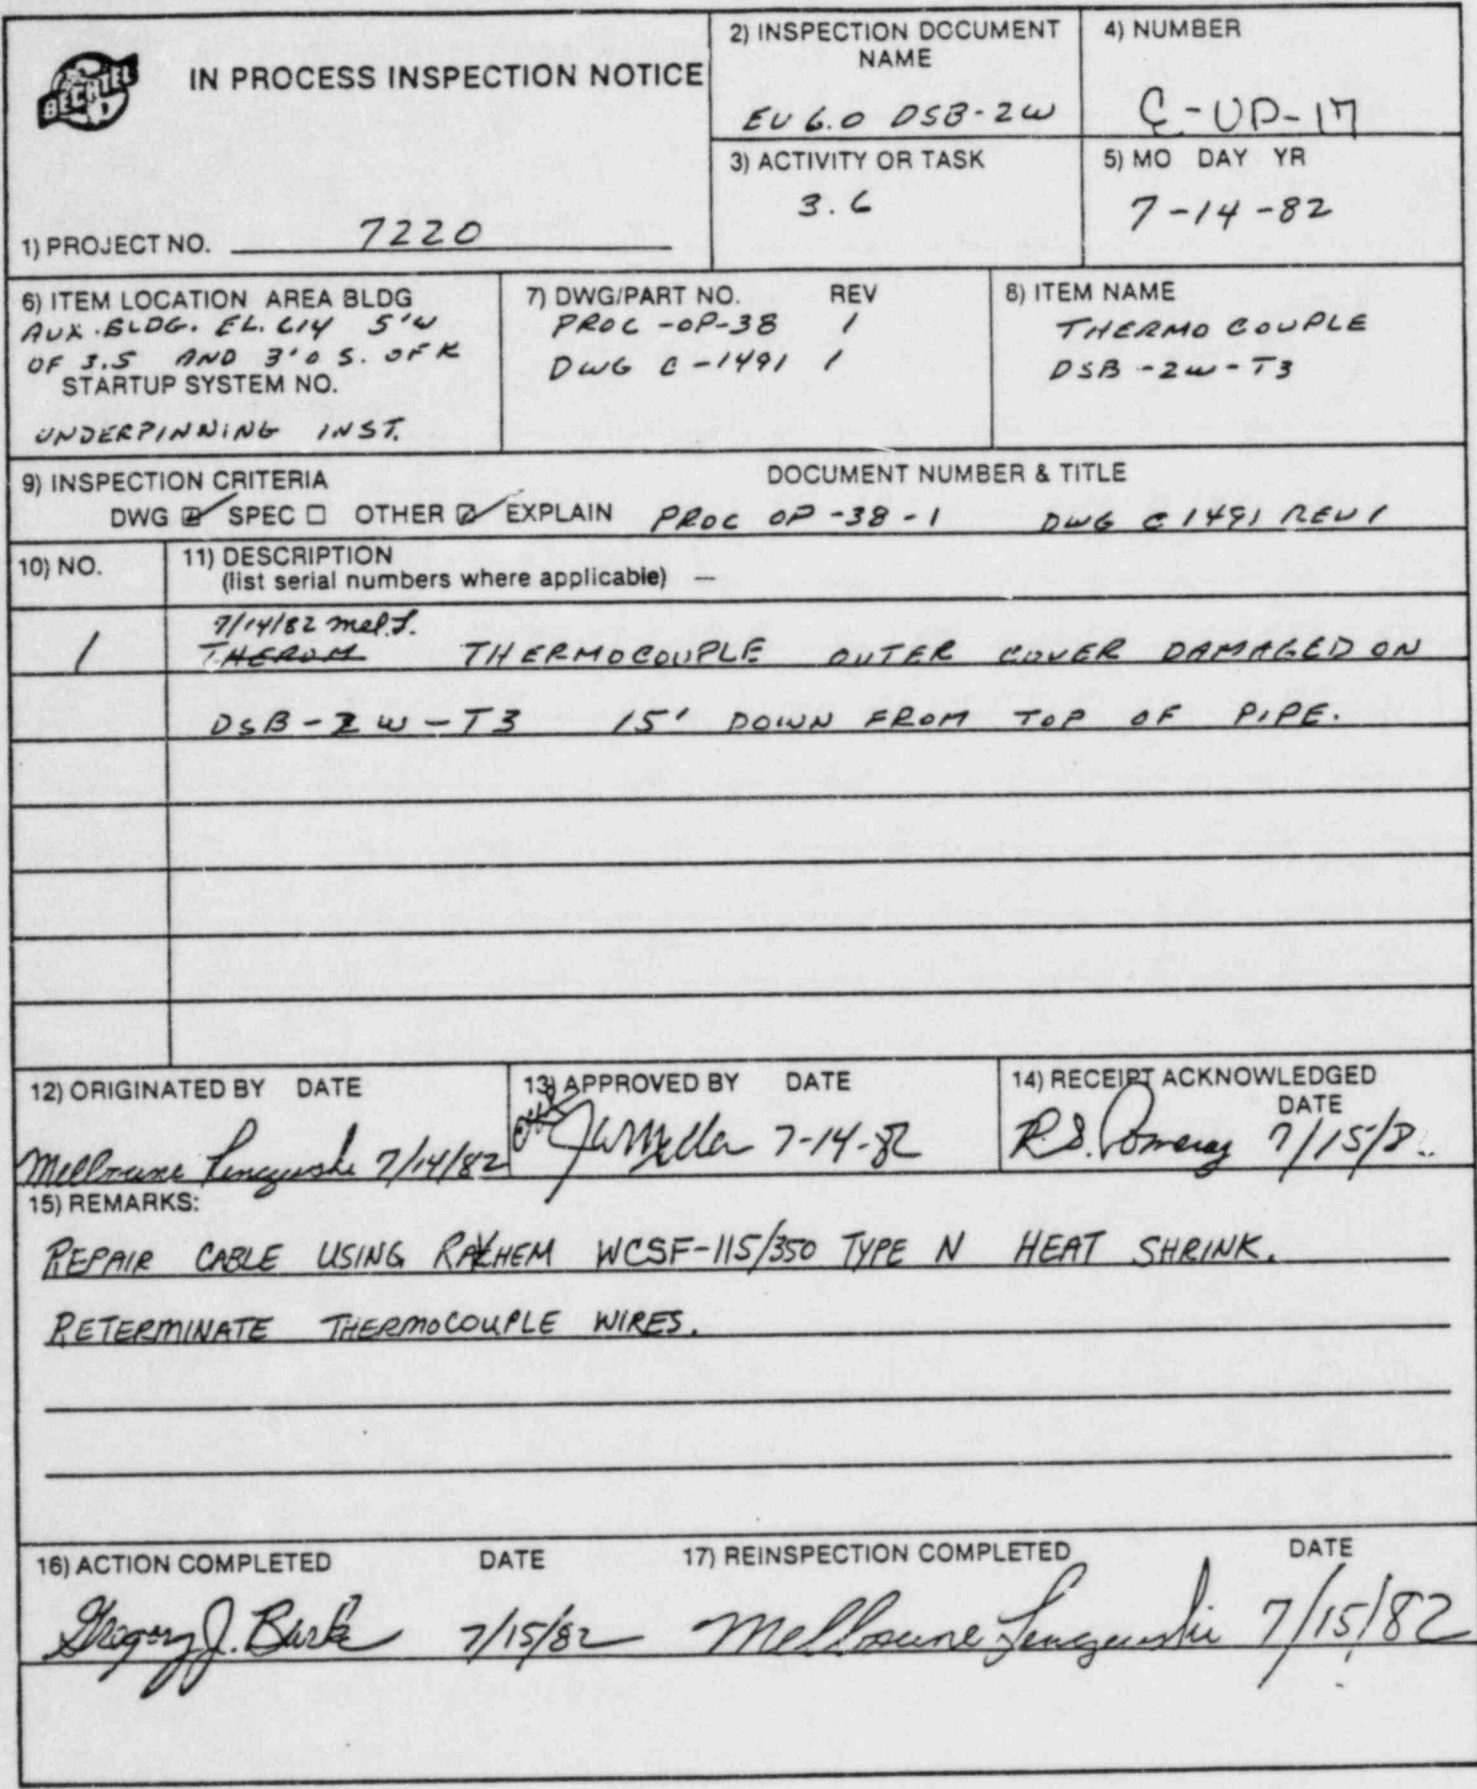 BECHTEL
IN PROCESS INSPECTION NOTICE
1) PROJECT NO. 7220
2) INSPECTION DOCUMENT
NAME
EV 6.0 DSB-2W
4) NUMBER
C-UP-17
3) ACTIVITY OR TASK
3.6
5) MO DAY YR
7-14-82
6) ITEM LOCATION AREA BLDG
AUX. BLDG. EL. 614 5'W
OF 3.5 AND 3'0 S. OF K
STARTUP SYSTEM NO.
UNDERPINNING INST.
7) DWG/PART NO. REV
PROC -OP-38 1
DWG C-1491 1
8) ITEM NAME
THERMO COUPLE
DSB -2W-T3
9) INSPECTION CRITERIA
DOCUMENT NUMBER & TITLE
DWG ☑ SPEC ☐ OTHER ☑ EXPLAIN PROC OP-38-1 DWG C 1491 REV 1
10) NO.
11) DESCRIPTION
(list serial numbers where applicable) —
7/14/82 mel. L.
1 THEROM THERMOCOUPLE OUTER COVER DAMAGED ON
DSB-2W-T3 15' DOWN FROM TOP OF PIPE.
12) ORIGINATED BY DATE
Melbourne 7/14/82
13) APPROVED BY DATE
JW Miller 7-14-82
14) RECEIPT ACKNOWLEDGED
DATE
R.S. Pomeroy 7/15/8
15) REMARKS:
REPAIR CABLE USING RAYCHEM WCSF-115/350 TYPE N HEAT SHRINK.
RETERMINATE THERMOCOUPLE WIRES.
16) ACTION COMPLETED DATE
Gregory J. Burke 7/15/82
17) REINSPECTION COMPLETED DATE
Melbourne 7/15/82